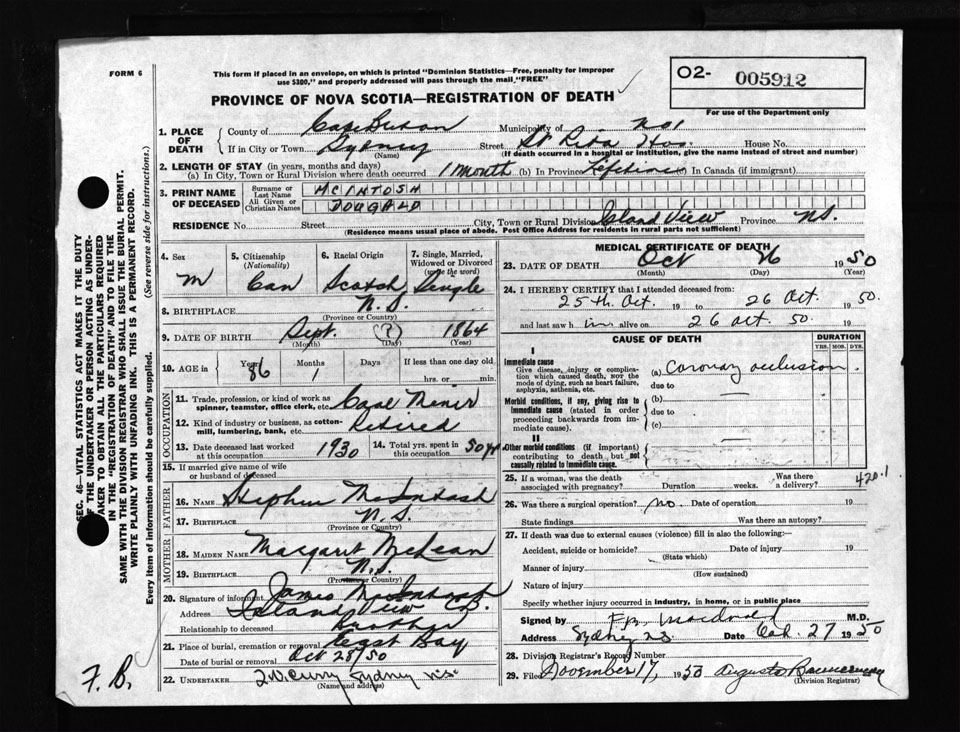 FORM 6
This form if placed in an envelope, on which is printed "Dominion Statistics—Free, penalty for improper
use $300," and properly addressed will pass through the mail "FREE".
PROVINCE OF NOVA SCOTIA—REGISTRATION OF DEATH
O2- 005912
For use of the Department only
1. PLACE OF DEATH
County of Cape Breton Municipality of No 1
If in City or Town Sydney Street St Rita Hos. House No.
(Name) (If death occurred in a hospital or institution, give the name instead of street and number)
2. LENGTH OF STAY (in years, months and days)
(a) In City, Town or Rural Division where death occurred 1 month (b) In Province Lifetime (c) In Canada (if immigrant)
3. PRINT NAME OF DECEASED
Surname or Last Name MCINTOSH
All Given or Christian Names DOUGALD
RESIDENCE No. Street City, Town or Rural Division Island View Province N.S.
(Residence means usual place of abode. Post Office Address for residents in rural parts not sufficient)
4. Sex M
5. Citizenship (Nationality) Can
6. Racial Origin Scotch
7. Single, Married, Widowed or Divorced (write the word) Single
8. BIRTHPLACE N.S.
(Province or Country)
9. DATE OF BIRTH Sept. (?) 1864
(Month) (Day) (Year)
10. AGE in Years 86 Months 1 Days If less than one day old hrs. or min.
OCCUPATION
11. Trade, profession, or kind of work as spinner, teamster, office clerk, etc. Coal Miner
12. Kind of industry or business, as cotton-mill, lumbering, bank, etc. Retired
13. Date deceased last worked at this occupation 1930
14. Total yrs. spent in this occupation 50 yr
15. If married give name of wife or husband of deceased
FATHER
16. NAME Stephen MacIntosh
17. BIRTHPLACE N.S.
(Province or Country)
MOTHER
18. MAIDEN NAME Margaret McLean
19. BIRTHPLACE N.S.
(Province or Country)
20. Signature of informant James MacIntosh
Address Island View C.B.
Relationship to deceased Brother
21. Place of burial, cremation or removal East Bay
Date of burial or removal Oct 28/50
22. UNDERTAKER Curry Sydney N.S.
(Name and address)
MEDICAL CERTIFICATE OF DEATH
23. DATE OF DEATH Oct 26 1950
(Month) (Day) (Year)
24. I HEREBY CERTIFY that I attended deceased from:
25th Oct. 19 to 26 Oct. 1950.
and last saw him alive on 26 Oct. 50. 19
CAUSE OF DEATH
DURATION
YRS. MOS. DYS.
I
Immediate cause
Give disease, injury or complication which caused death, not the mode of dying, such as heart failure, asphyxia, asthenia, etc.
(a) Coronary occlusion.
due to
Morbid conditions, if any, giving rise to immediate cause (stated in order proceeding backwards from immediate cause).
(b)
due to
(c)
II
Other morbid conditions (if important) contributing to death but not causally related to immediate cause.
25. If a woman, was the death associated with pregnancy? Duration weeks. Was there a delivery? 420.1
26. Was there a surgical operation? no. Date of operation 19
State findings Was there an autopsy?
27. If death was due to external causes (violence) fill in also the following:
Accident, suicide or homicide? Date of injury 19
(State which)
Manner of injury
(How sustained)
Nature of injury
Specify whether injury occurred in industry, in home, or in public place
Signed by M.D.
Address Sydney NS Date Oct. 27 1950
28. Division Registrar's Record Number
29. Filed November 17, 1950
(Division Registrar)
F.B.
SEC. 46—VITAL STATISTICS ACT MAKES IT THE DUTY
OF THE UNDERTAKER OR PERSON ACTING AS UNDERTAKER TO OBTAIN ALL THE PARTICULARS REQUIRED
IN THE "REGISTRATION OF DEATH" AND TO FILE THE
SAME WITH THE DIVISION REGISTRAR WHO SHALL ISSUE THE BURIAL PERMIT.
WRITE PLAINLY WITH UNFADING INK. THIS IS A PERMANENT RECORD.
Every item of information should be carefully supplied. (See reverse side for instructions.)